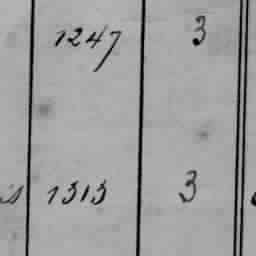 1247 3
1313 3